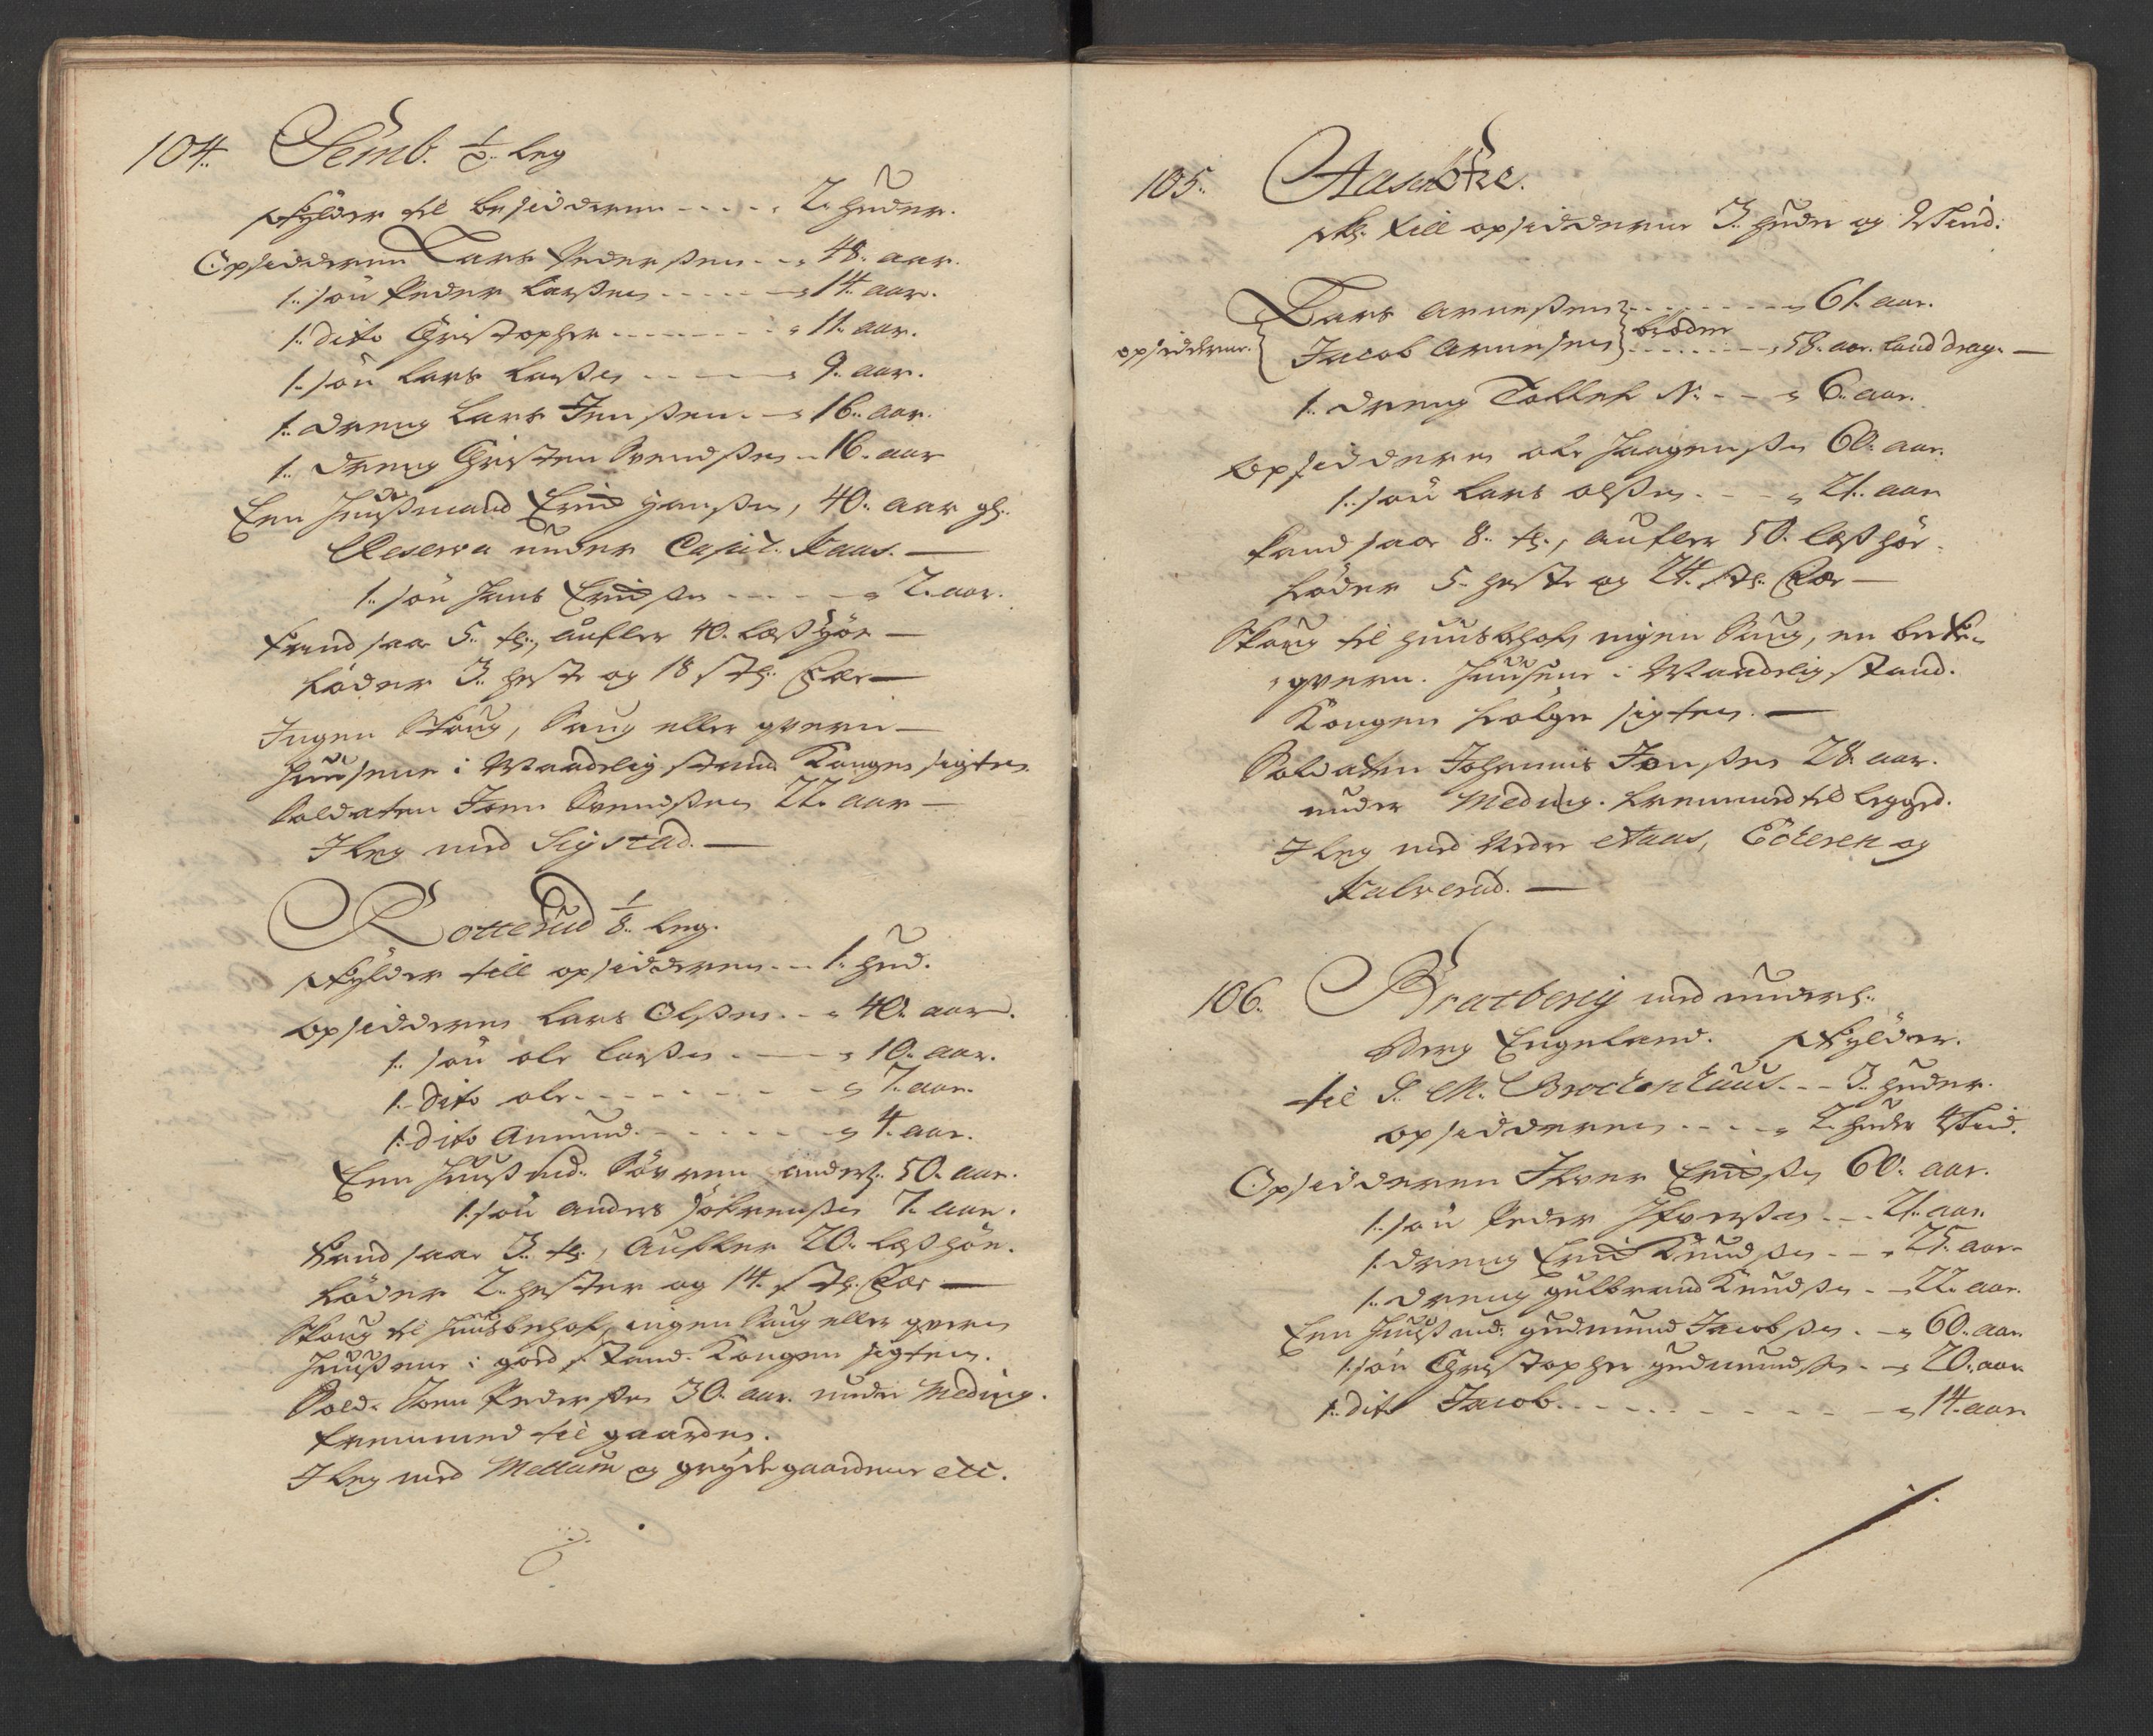 104. Semb. 1/2 Leg
skylder til besidderen - - - - 2 huder.
Opsidderen Lars Pedersen - - 48. aar.
1. søn Peder Larsen - - - - 14. aar.
1. dito Christopher - - - - - 11. aar.
1. søn Lars Larsen - - - - 9. aar.
1. dreng Lars Jensen - - 16. aar.
1. dreng Christen Svendsen - 16. aar
Een Huusmand Erich Hansen, 40. aar gl.
Reserva under Capit. Kaas. —
1. søn Hans Erichsen - - - - 2. aar.
kand saae 5. tr., aufler 40. Læs høe —
føder 3. heste og 18 stk. Fæe —
Ingen Skoug, Saug eller qvern —
Huusene i Maadelig stand Kongen sigten
Soldaten Joen Svendsen 22. aar —
I Leg med Sigstad. —
Rotterud 1/8. Leg.
skylder till opsidderen - - 1. hud.
Opsidderen Lars Olsen - - 40. aar.
1. søn ole Larsen - - - 10. aar.
1. dito ole - - - - - - 7. aar.
1. dito Anund - - - - - 4. aar.
Een Huusmd. Søvren anders. 50. aar.
1. søn anders Søfrensen 7. aar.
kand saae 3. tr., Aufler 20. Læs høe.
føder 2. hester og 14. stk. Fæe —
Skoug til Huusbehof, ingen Saug eller qvern
Huusene i goed stand. Kongen sigten.
Sold. Joen Pedersen 30. aar. under Meding.
fremmed til gaarden.
I Leg med Mellum og gaardene etc.
105.
skl. till opsidderne 3. huder og skind:
Lars Arnesen - - - - 61. aar.
opsidderne. brødre
Jacob Arnesen - - - - 58. aar. Land drag. —
1. dreng Tollef N: - - - 6. aar.
Opsidderen ole Haagensen 60. aar.
1. søn Lars olsen - - - 21. aar
kand saae 8. tr., aufler 50. læs høe.
føder 5. heste og 24. stk. Fæe —
Skoug til huusbehof, ingen Saug, en bekke
qvern. Huusene i Maadelig stand.
Kongen følger sigten. —
Soldaten Johannis Jonsen 28. aar.
under Meding. fremmed til Legged.
I Leg med Nedre Aaas, Eckeren og
Kalverud. —
106. Bratberg med underl:
Berg Engeland. skylder.
til S. M. Brockenhuus - - 3. huder.
opsidderen - - - - 2. huder 4 skind.
Opsidderen Ifver Erichsen 60. aar.
1. søn Peder Ifversen - - 21. aar.
1. dreng Erich Knudsen - - 25. aar.
1. dreng gulbrand Knudsen - - 22. aar.
Een Huusmd: gudmund Jacobsen - - 60. aar.
1. søn Christopher gudmundsen - - 20. aar
1. dito Jacob - - - - - - - 14. aar